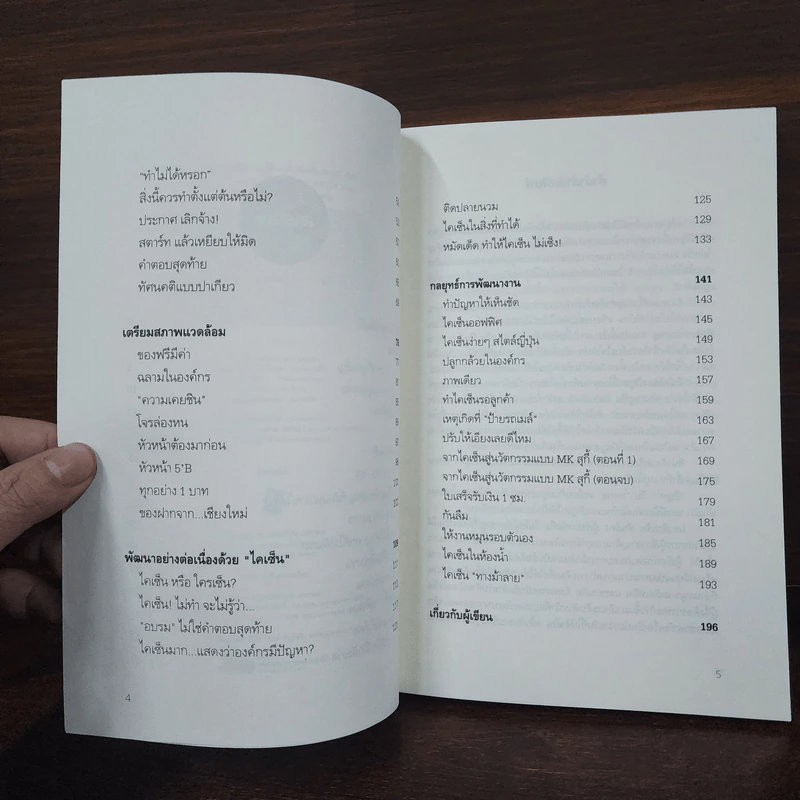 "ทำไม่ได้หรอก"
สิ่งนี้ควรทำตั้งแต่ต้นหรือไม่?
ประกาศ เลิกจ้าง!
สตาร์ท แล้วเหยียบให้มิด
คำตอบสุดท้าย
ทัศนคติแบบปาเกียว
เตรียมสภาพแวดล้อม
ของฟรีมีค่า
ฉลามในองค์กร
"ความเคยชิน"
โจรล่องหน
หัวหน้าต้องมาก่อน
หัวหน้า 5'B
ทุกอย่าง 1 บาท
ของฝากจาก...เชียงใหม่
พัฒนาอย่างต่อเนื่องด้วย "ไคเซ็น"
ไคเซ็น หรือ ใครเซ็น?
ไคเซ็น! ไม่ทำ จะไม่รู้ว่า...
"อบรม" ไม่ใช่คำตอบสุดท้าย
ไคเซ็นมาก...แสดงว่าองค์กรมีปัญหา?
4
ติดปลายนวม 125
ไคเซ็นในสิ่งที่ทำได้ 129
หมัดเด็ด ทำให้ไคเซ็น ไม่เซ็ง! 133
กลยุทธ์การพัฒนางาน 141
ทำปัญหาให้เห็นชัด 143
ไคเซ็นออฟฟิศ 145
ไคเซ็นง่ายๆ สไตล์ญี่ปุ่น 149
ปลูกกล้วยในองค์กร 153
ภาพเดียว 157
ทำไคเซ็นรอลูกค้า 159
เหตุเกิดที่ "ป้ายรถเมล์" 163
ปรับให้เอียงเลยดีไหม 167
จากไคเซ็นสู่นวัตกรรมแบบ MK สุกี้ (ตอนที่ 1) 169
จากไคเซ็นสู่นวัตกรรมแบบ MK สุกี้ (ตอนจบ) 175
ใบเสร็จรับเงิน 1 ซม. 179
กันลืม 181
ให้งานหมุนรอบตัวเอง 185
ไคเซ็นในห้องน้ำ 189
ไคเซ็น "ทางม้าลาย" 193
เกี่ยวกับผู้เขียน 196
5